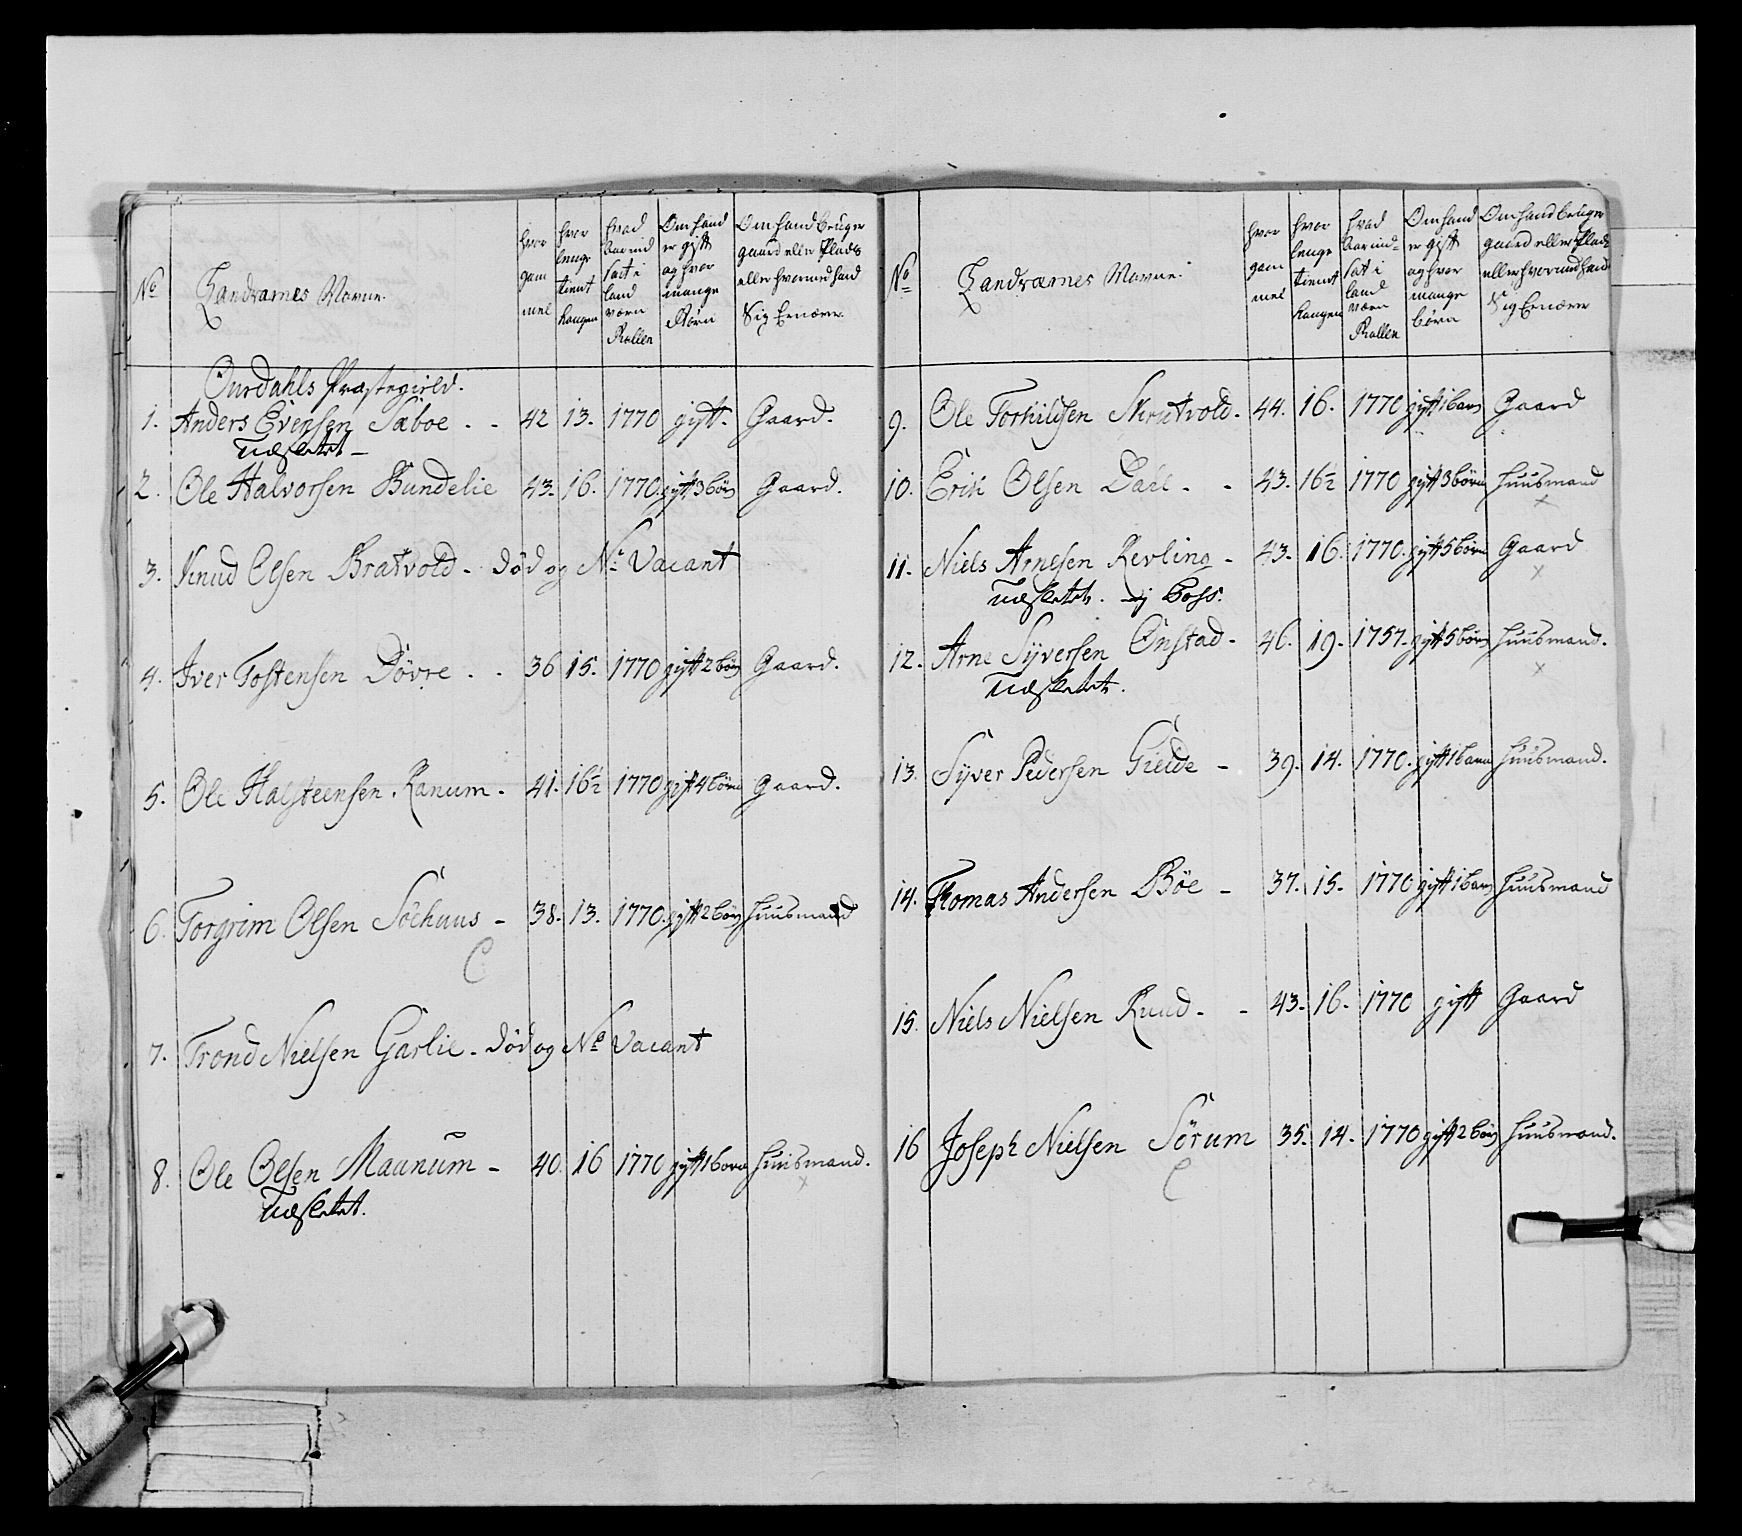 No
Landværnes Navne.
hvor
gam
mel
hvor
lenge
tient
kongen
hvad
aar ind
sat i
land
værn
Rollen
Om hand
er gift
og hvor
mange
Børn
Om hand bruger
gaard eller Plads
eller hvormed hand
Sig Ernærer
Ourdahls Præstegield.
1. Anders Evensen Sæboe . . 42 13. 1770 gift. Gaard.
Udslettet
2. Ole Halvorsen Bundelie 43. 16. 1770. gift 3 børn Gaard.
3. Knud Olsen Bratvold - død og No Vacant
4. Iver Tostensen Dövre . . 36 15. 1770 gift 2 børn Gaard.
5. Ole Halsteensen Ranum . 41. 16½ 1770 gift 4 børn Gaard.
6. Torgrim Olsen Söehuus - 38. 13. 1770. gift 2 børn Huusmand
C
7. Trond Nielsen Garlie - død og No Vacant
8. Ole Olsen Maunum - 40. 16 1770 gift 1 barn Huusmand.
x
Udslettet.
No
Landværnes Navne.
hvor
gam
mel
hvor
lenge
tient
kongen
hvad
aar ind-
sat i
land
værn
Rollen
Om hand
er gift
og hvor
mange
børn
Om hand bruger
gaard eller Plads
eller hvormed hand
Sig Ernærer
9. Ole Torkildsen Skrutvold. 44. 16. 1770 gift 1 barn Gaard
10. Erik Olsen Dahl . - 43. 16½ 1770 gift 3 børn Huusmand
x
11. Niels Arnesen Revling - 43. 16. 1770. gift 5 børn Gaard
x
Udslettet.
12. Arne Syversen Onstad - 46. 19. 1757. gift 5 børn Huusmand.
x
Udslettet.
13. Syver Pedersen Gielde - 39. 14. 1770. gift 1 barn Huusmand.
14. Thomas Andersen Böe - 37. 15. 1770 gift 1 barn Huusmand
15. Niels Nielsen Ruud - - 43. 16. 1770 gift Gaard
16 Joseph Nielsen Sörum 35. 14. 1770 gift 2 børn Huusmand.
C